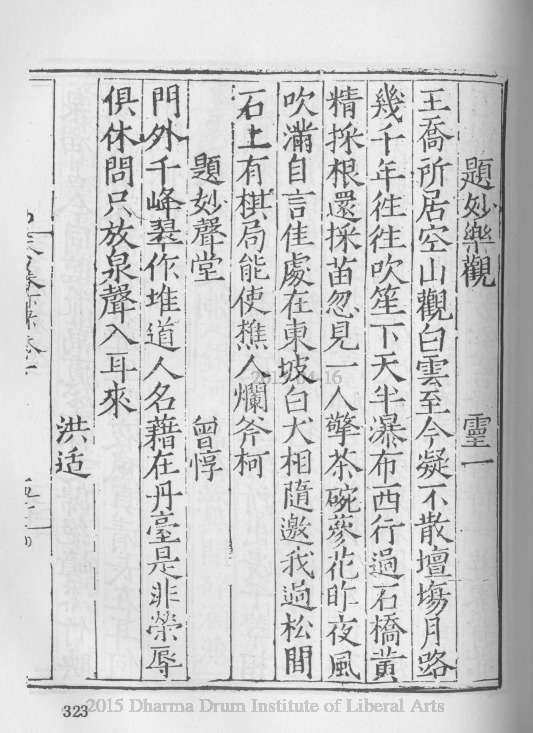 題妙樂觀 靈一
王喬所居空山觀白雲至今凝不散壇場月路
幾千年徃徃吹笙下天半瀑布西行過石橋黃
精採根還採苗忽見一人擎茶碗蓼花昨夜風
吹滿自言佳處在東坡白犬相隨邀我過松間
石上有棋局能使樵人爛斧柯
題妙聲堂 曾惇
門外千峰翠作堆道人名藉在丹臺是非榮辱
俱休問只放泉聲入耳來
洪适
323
2015 Dharma Drum Institute of Liberal Arts